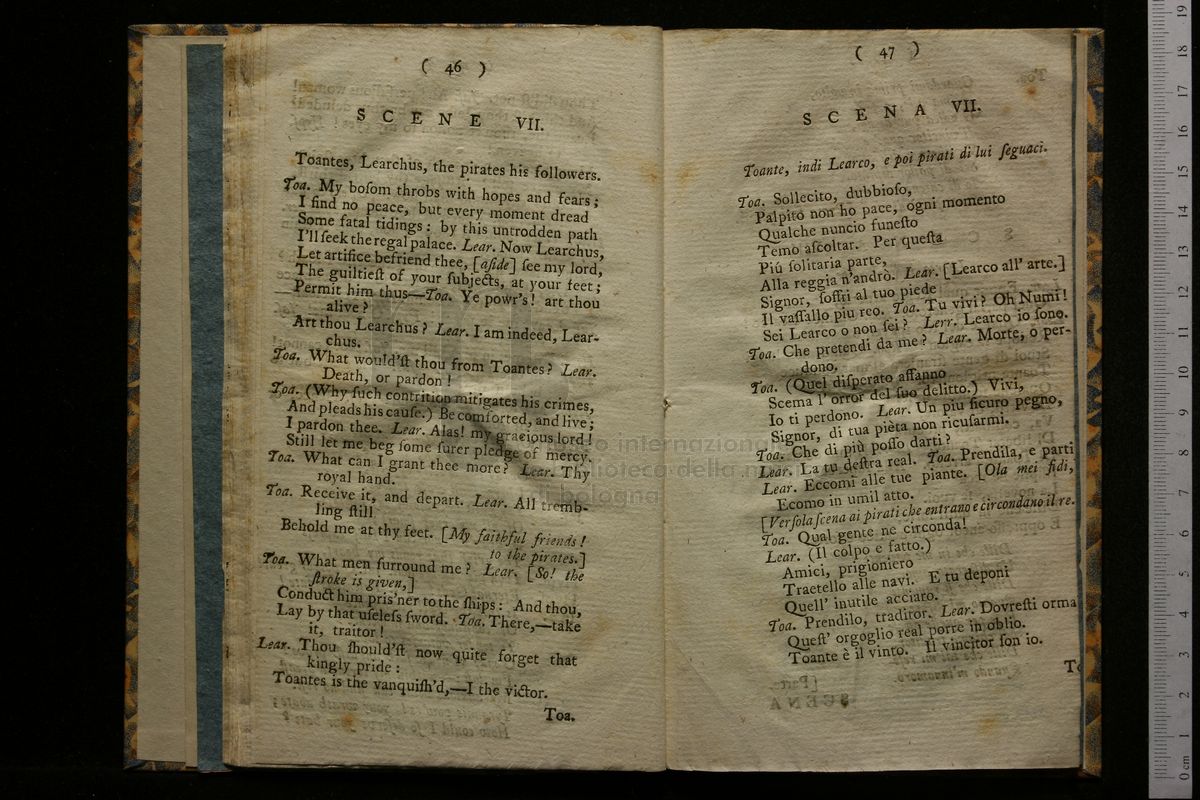 ( 46 )
SCENE VII.
Toantes, Learchus, the pirates his followers.
Toa. My boſom throbs with hopes and fears;
I find no peace, but every moment dread
Some fatal tidings: by this untrodden path
I'll ſeek the regal palace. Lear. Now Learchus,
Let artifice befriend thee, [aſide] ſee my lord,
The guiltieſt of your ſubjects, at your feet;
Permit him thus—Toa. Ye powr's! art thou
alive?
Art thou Learchus? Lear. I am indeed, Lear-
chus.
Toa. What would'ſt thou from Toantes? Lear.
Death, or pardon!
Toa. (Why ſuch contrition mitigates his crimes,
And pleads his cauſe.) Be comforted, and live;
I pardon thee. Lear. Alas! my gracious lord!
Still let me beg ſome ſurer pledge of mercy.
Toa. What can I grant thee more? Lear. Thy
royal hand.
Toa. Receive it, and depart. Lear. All tremb-
ling ſtill
Behold me at thy feet. [My faithful friends!
to the pirates.]
Toa. What men ſurround me? Lear. [So! the
ſtroke is given,]
Conduct him pris'ner to the ſhips: And thou,
Lay by that uſeleſs ſword. Toa. There,—take
it, traitor!
Lear. Thou ſhould'ſt now quite forget that
kingly pride:
Toantes is the vanquiſh'd,—I the victor.
Toa.
( 47 )
SCENA VII.
Toante, indi Learco, e poi pirati di lui ſeguaci.
Toa. Sollecito, dubbioſo,
Palpito non ho pace, ogni momento
Qualche nuncio funeſto
Temo aſcoltar. Per queſta
Piú ſolitaria parte,
Alla reggia n'andrò. Lear. [Learco all' arte.]
Signor, ſoffri al tuo piede
Il vaſſallo piu reo. Toa. Tu vivi? Oh Numi!
Sei Learco o non ſei? Lerr. Learco io ſono.
Toa. Che pretendi da me? Lear. Morte, o per-
dono.
Toa. (Quel diſperato affanno
Scema l' orror del ſuo delitto.) Vivi,
Io ti perdono. Lear. Un piu ſicuro pegno,
Signor, di tua pièta non ricuſarmi.
Toa. Che di più poſſo darti?
Lear. La tu deſtra real. Toa. Prendila, e parti
Lear. Eccomi alle tue piante. [Ola mei fidi,
Ecomo in umil atto.
[Verſo la ſcena ai pirati che entrano e circondano il re.
Toa. Qual gente ne circonda!
Lear. (Il colpo e fatto.)
Amici, prigioniero
Traetello alle navi. E tu deponi
Quell' inutile acciaro.
Toa. Prendilo, traditor. Lear. Dovreſti orma
Queſt' orgoglio real porre in oblio.
Toante è il vinto. Il vincitor ſon io.
To
internazionale
biblioteca della
bologna